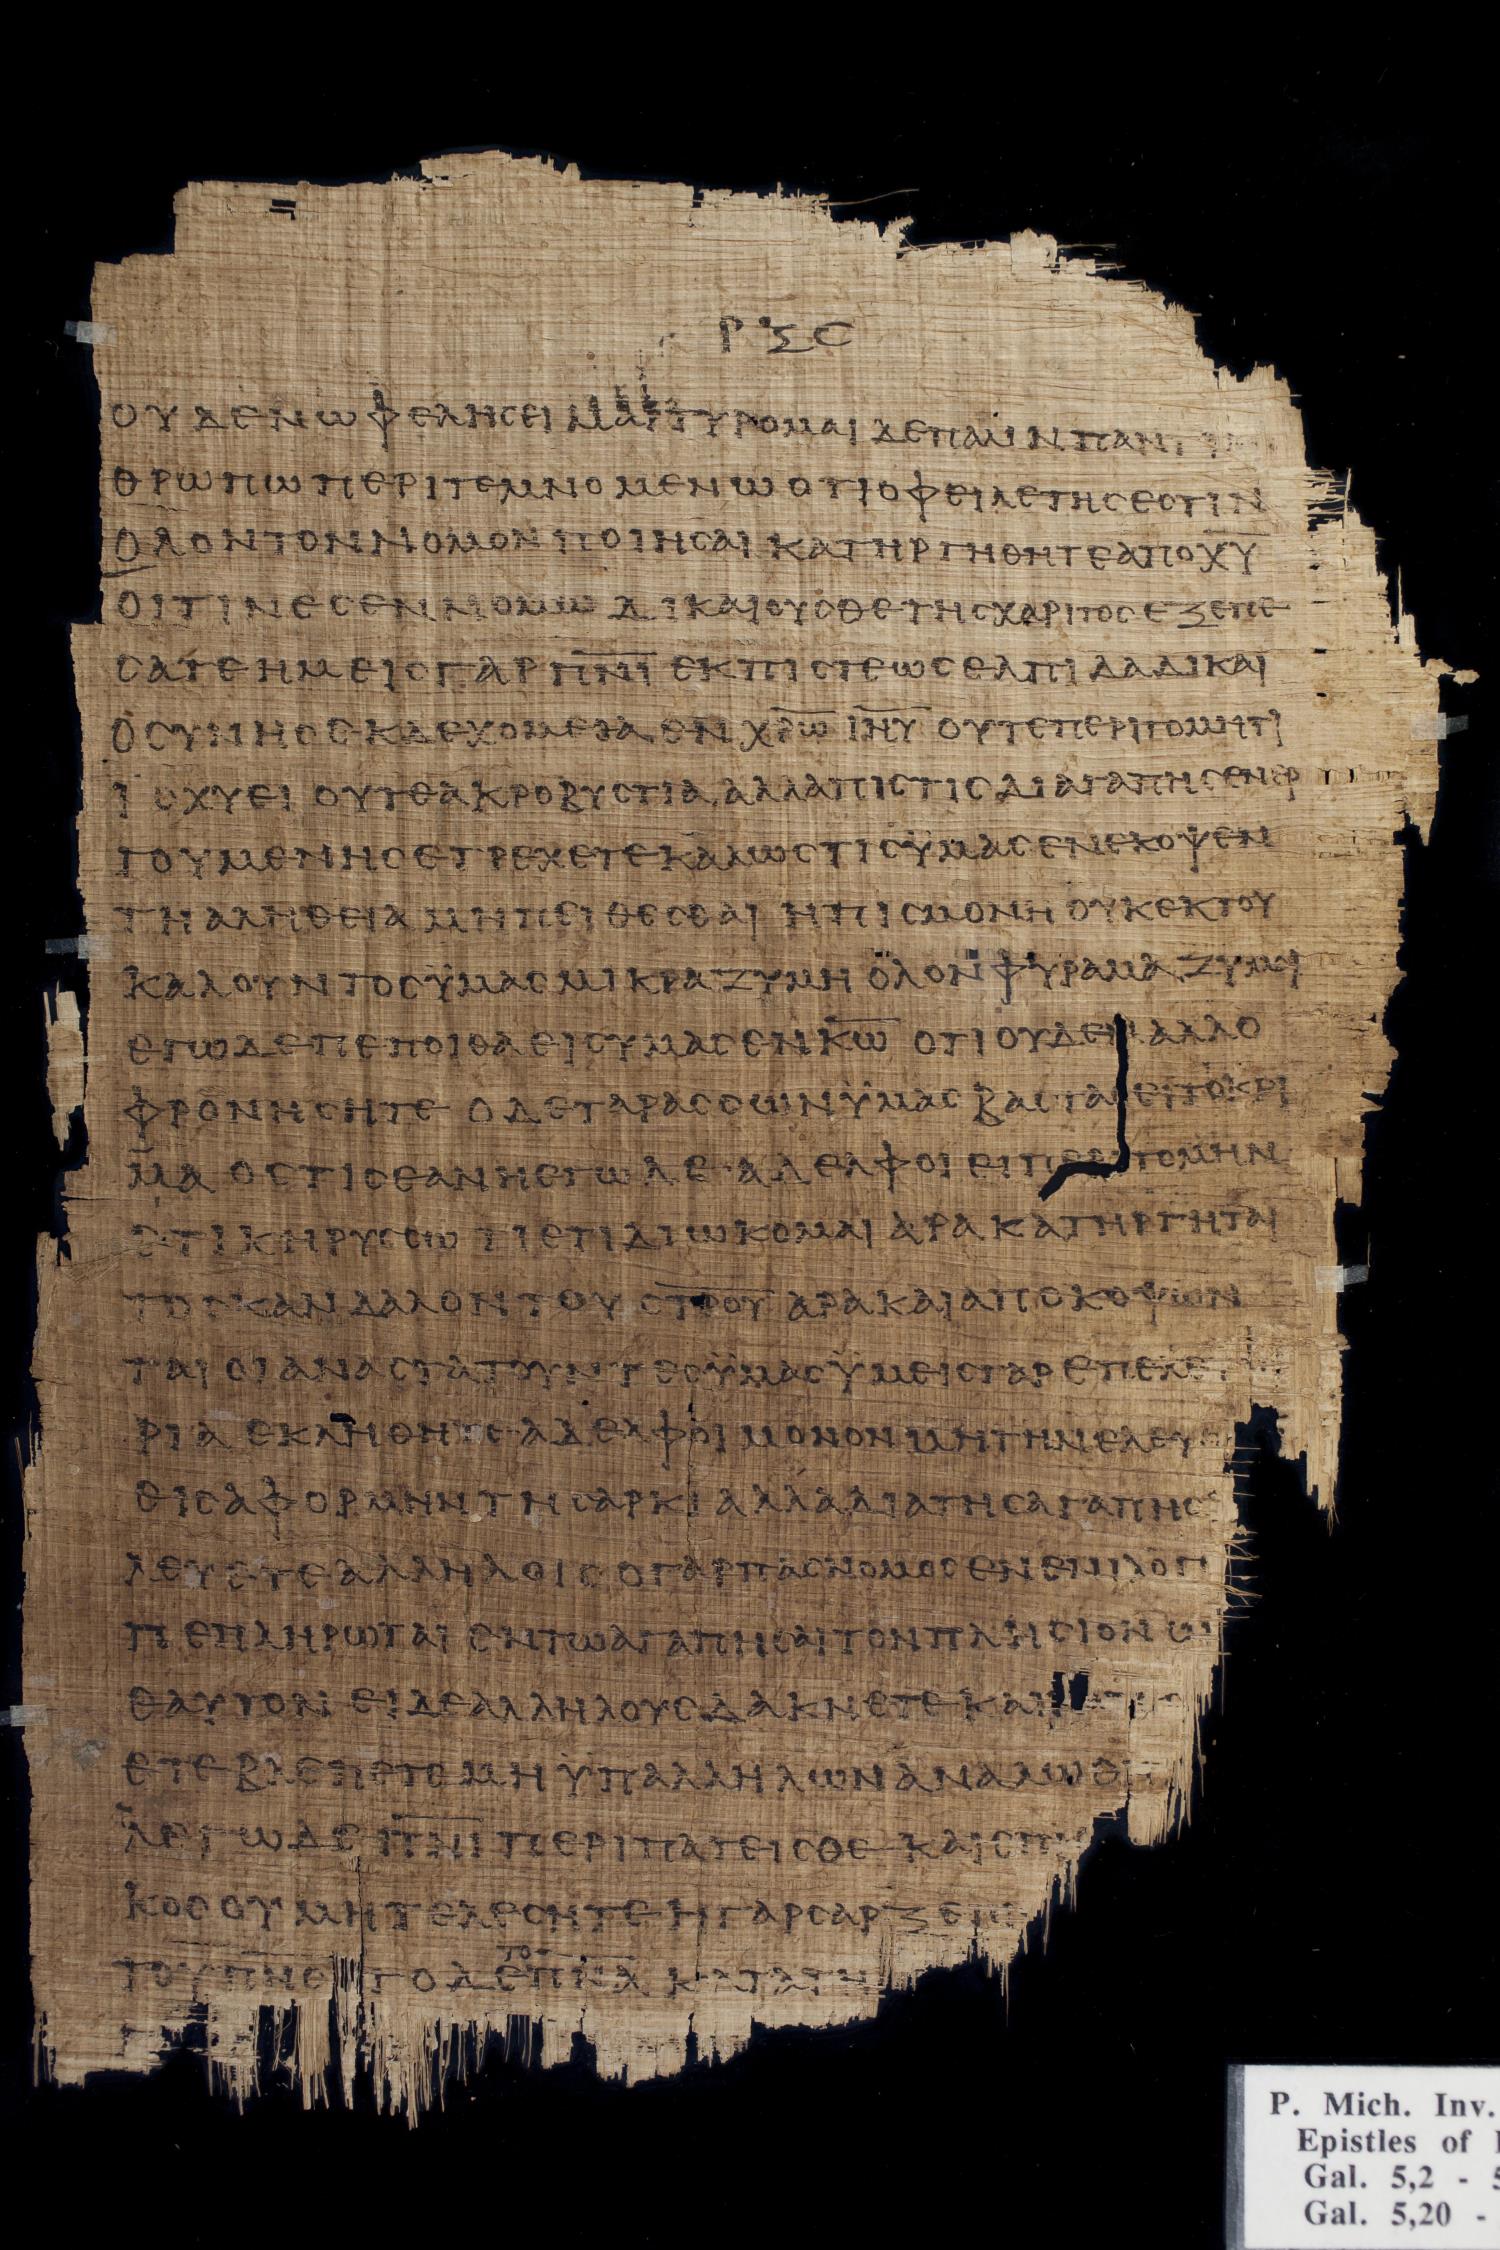 ΡΞϚ
ΟΥΔΕΝ ΩΦΕΛΗϹΕΙ ΜΑΡΤΥΡΟΜΑΙ ΔΕ ΠΑΛΙΝ
ΘΡΩΠΩ ΠΕΡΙΤΕΜΝΟΜΕΝΩ ΟΤΙ ΟΦΕΙΛΕΤΗϹ ΕϹΤΙΝ
ΟΛΟΝ ΤΟΝ ΝΟΜΟΝ ΠΟΙΗϹΑΙ ΚΑΤΗΡΓΗΘΗΤΕ ΑΠΟ Χ̅Υ̅
ΟΙΤΙΝΕϹ ΕΝ ΝΟΜΩ ΔΙΚΑΙΟΥϹΘΕ ΤΗϹ ΧΑΡΙΤΟϹ ΕΞΕΠΕ
ϹΑΤΕ ΗΜΕΙϹ ΓΑΡ Π̅Ν̅Ι̅ ΕΚ ΠΙϹΤΕΩϹ ΕΛΠΙΔΑ ΔΙΚΑΙ
ΟϹΥΝΗϹ ΕΚΔΕΧΟΜΕΘΑ ΕΝ Χ̅Ρ̅Ω̅ Ι̅Η̅Υ̅ ΟΥΤΕ ΠΕΡΙΤΟΜΗ ΤΙ
ΙϹΧΥΕΙ ΟΥΤΕ ΑΚΡΟΒΥϹΤΙΑ ΑΛΛΑ ΠΙϹΤΙϹ ΔΙ ΑΓΑΠΗϹ ΕΝΕΡ
ΓΟΥΜΕΝΗϹ ΕΤΡΕΧΕΤΕ ΚΑΛΩϹ ΤΙϹ ΫΜΑϹ ΕΝΕΚΟΨΕΝ
ΤΗ ΑΛΗΘΕΙΑ ΜΗ ΠΕΙΘΕϹΘΑΙ Η ΠΙϹΜΟΝΗ ΟΥΚ ΕΚ ΤΟΥ
ΚΑΛΟΥΝΤΟϹ ΫΜΑϹ ΜΙΚΡΑ ΖΥΜΗ ΟΛΟΝ ΦΥΡΑΜΑ ΖΥΜΟΙ
ΕΓΩ ΔΕ ΠΕΠΟΙΘΑ ΕΙϹ ΥΜΑϹ ΕΝ Κ̅Ω̅ ΟΤΙ ΟΥΔΕΝ ΑΛΛΟ
ΦΡΟΝΗϹΗΤΕ Ο ΔΕ ΤΑΡΑϹϹΩΝ ΫΜΑϹ ΒΑϹΤΑϹΕΙ ΤΟ ΚΡΙ
ΜΑ ΟϹΤΙϹ ΕΑΝ Η ΕΓΩ ΔΕ ΑΔΕΛΦΟΙ ΕΙ ΠΕΡΙΤΟΜΗΝ
ΕΤΙ ΚΗΡΥϹϹΩ ΤΙ ΕΤΙ ΔΙΩΚΟΜΑΙ ΑΡΑ ΚΑΤΗΡΓΗΤΑΙ
ΤΟ ϹΚΑΝΔΑΛΟΝ ΤΟΥ Ϲ̅Τ̅Ρ̅Ο̅Υ̅ ΑΡΑ ΚΑΙ ΑΠΟΚΟΨΩΝ
ΤΑΙ ΟΙ ΑΝΑϹΤΑΤΟΥΝΤΕϹ ΫΜΑϹ ΫΜΕΙϹ ΓΑΡ ΕΠ ΕΛΕ
ΡΙΑ ΕΚΛΗΘΗΤΕ ΑΔΕΛΦΟΙ ΜΟΝΟΝ ΜΗ ΤΗΝ ΕΛΕΥ
ΘΙϹ ΑΦΟΡΜΗΝ ΤΗ ϹΑΡΚΙ ΑΛΛΑ ΔΙΑ ΤΗϹ ΑΓΑΠΗϹ
ΛΕΥΕΤΕ ΑΛΛΗΛΟΙϹ Ο ΓΑΡ ΠΑϹ ΝΟΜΟϹ ΕΝ ΕΝΙ ΛΟΓ
ΠΕΠΛΗΡΩΤΑΙ ΕΝ ΤΩ ΑΓΑΠΗϹΑΙ ΤΟΝ ΠΛΗϹΙΟΝ
ΕΑΥΤΟΝ ΕΙ ΔΕ ΑΛΛΗΛΟΥϹ ΔΑΚΝΕΤΕ ΚΑΙ
ΕΤΕ ΒΛΕΠΕΤΕ ΜΗ ΫΠ ΑΛΛΗΛΩΝ ΑΝΑΛΩΘΗ
ΛΕΓΩ ΔΕ Π̅Ν̅Ι̅ ΠΕΡΙΠΑΤΕΙϹΘΕ ΚΑΙ ΕΠΙ
ΚΟϹ ΟΥ ΜΗ ΤΕΛΕϹΗΤΕ Η ΓΑΡ ϹΑΡΞ ΕΠΙ
ΤΟΥ Π̅Ν̅Ϲ̅ ΤΟ ΔΕ Π̅Ν̅Α̅ ΚΑΤΑ ΤΗ
P. Mich. Inv.
Epistles of
Gal. 5,2 - 5
Gal. 5,20 -